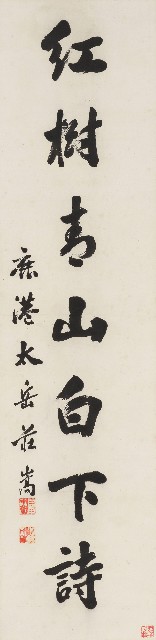 紅樹青山白下詩
鹿港太岳莊嵩